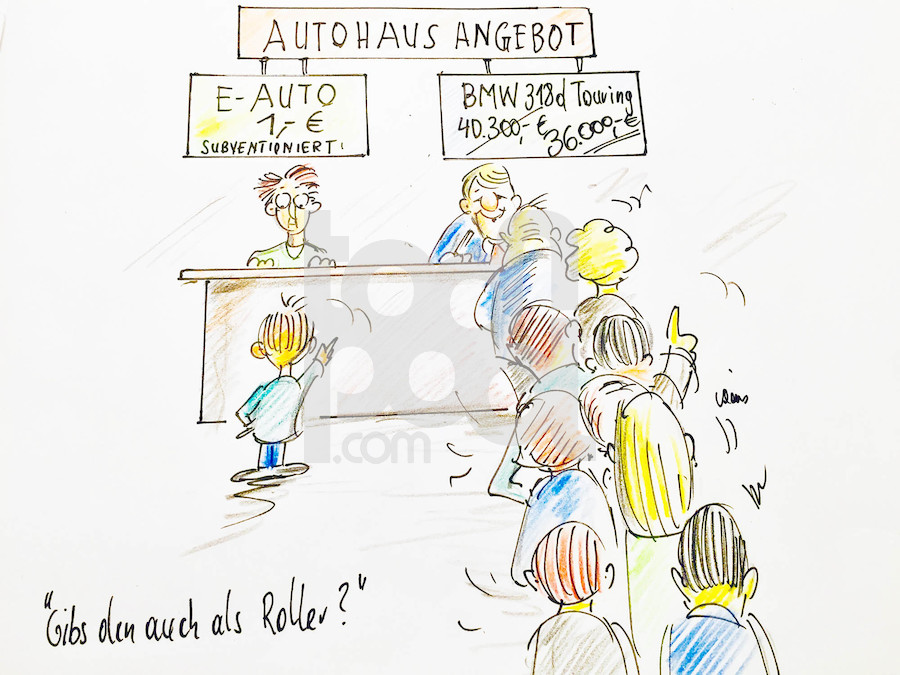 AUTOHAUS ANGEBOT
E-AUTO
1,- €
SUBVENTIONIERT!
BMW 318d Touring
40.300,- €
36.000,- €
.com
"Gibs den auch als Roller?"